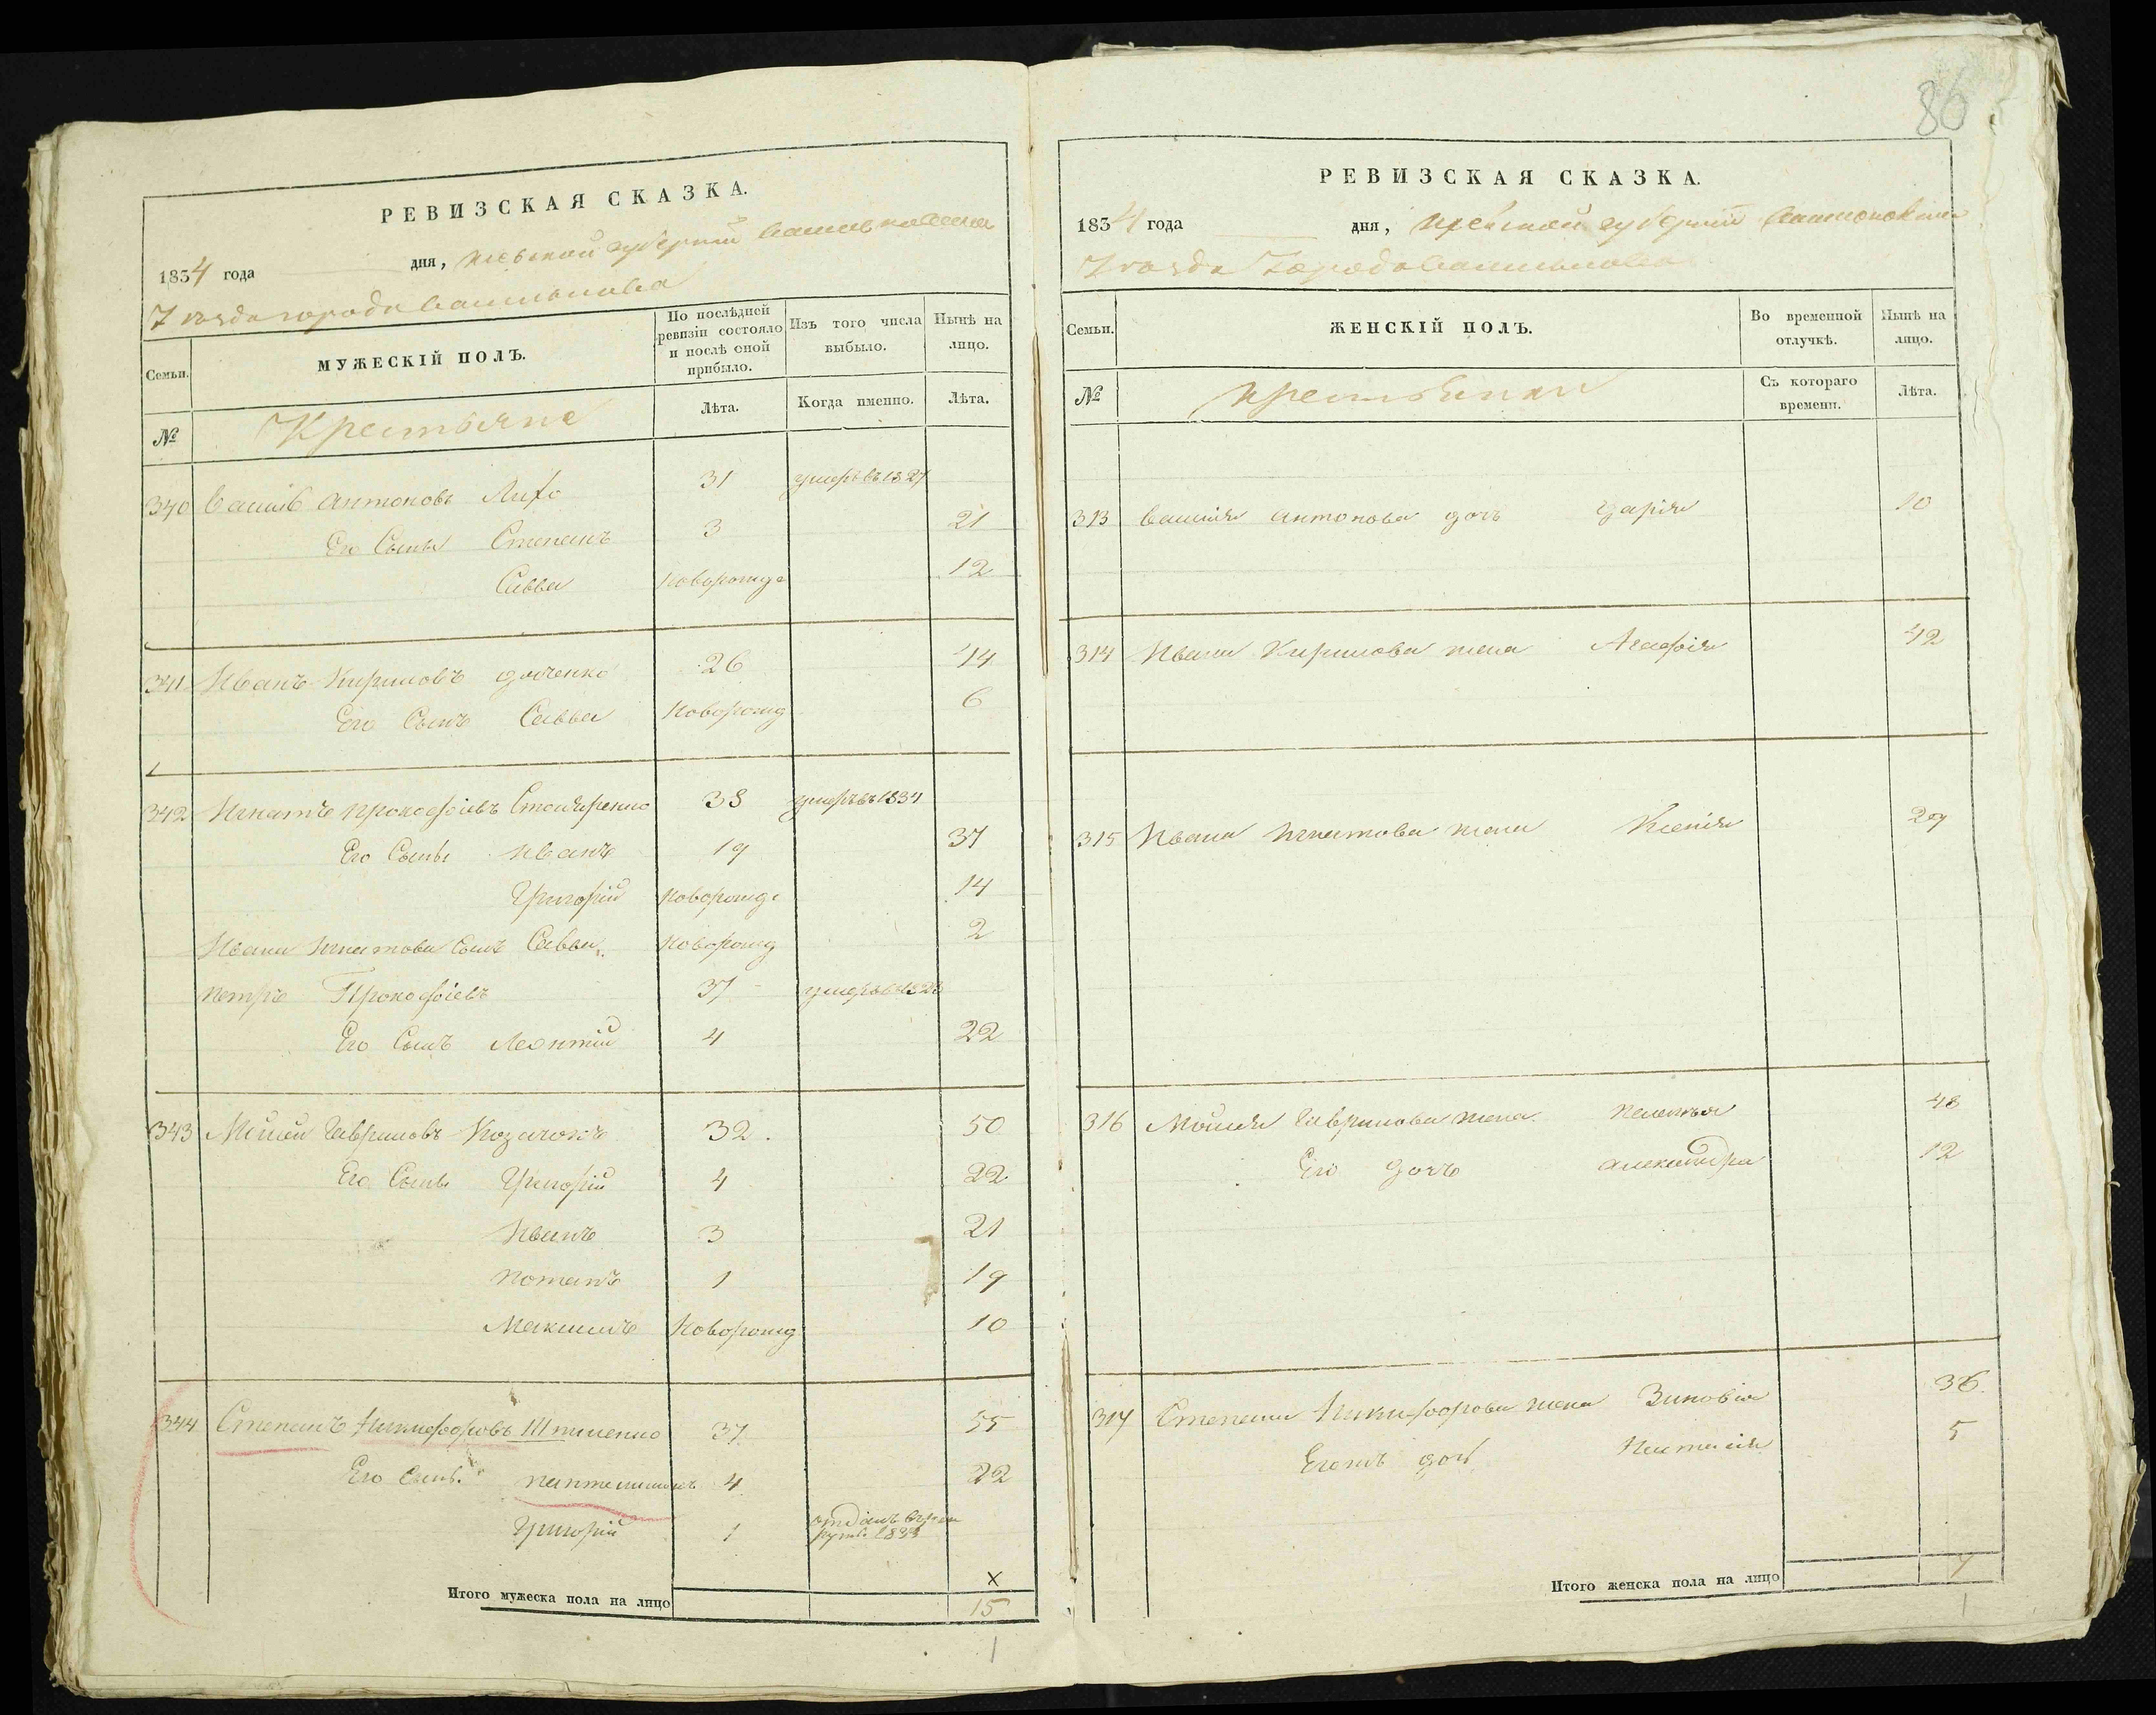 86
РЕВИЗСКАЯ СКАЗКА.
1834 года дня, Киевской губерніи Васильковскаго
Уѣзда города Василькова
Семьи.
МУЖЕСКІЙ ПОЛЪ.
По послѣдней ревизіи состояло и послѣ оной прибыло.
Изъ того числа выбыло.
Нынѣ на лицо.
№
Крестьяне
Лѣта.
Когда именно.
Лѣта.
340 Василій Антоновъ 31 умеръ въ 1827
Его Сыны Степанъ 3 21
Савва новорожде 12
341 Иванъ Кириловъ 26 44
Его Сынъ Савва новорожд 6
342 Игнатъ Прокофіевъ 38 умеръ въ 1834
Его Сыны Иванъ 19 37
Григорій новорожде 14
Ивана Игнатова Сынъ Савва новорожд 2
Петръ Прокофіевъ 37
Его Сынъ Леонтій 4 22
343 Мѡисей Гавриловъ Козачокъ 32. 50
Его Сыны Григорій 4 22
Иванъ 3 21
Потапъ 1 19
Максимъ Новорожд 10
344 Степанъ Никифоровъ 37 55
Его Сын. Пантелимонъ 4 22
Григорій 1
Итого мужеска пола на лицо
x
15
РЕВИЗСКАЯ СКАЗКА.
1834 года дня, Кіевской губерніи Васильковскаго
Уѣзда Города Василькова
Семьи.
ЖЕНСКІЙ ПОЛЪ.
Во временной отлучкѣ.
Нынѣ на лицо.
№
Крестьянки
Съ котораго времени.
Лѣта.
313 Василія Антонова дочь Дарія 10
314 Ивана Кирилова жена Агафія 42
315 Ивана Игнатова жена Ксенія 29
316 Моисея Гаврилова жена Пелагія 48
Его дочъ Александра 12
317 Степана Никифорова жена Зиновія 36.
дочь Настасія 5
Итого женска пола на лицо 7